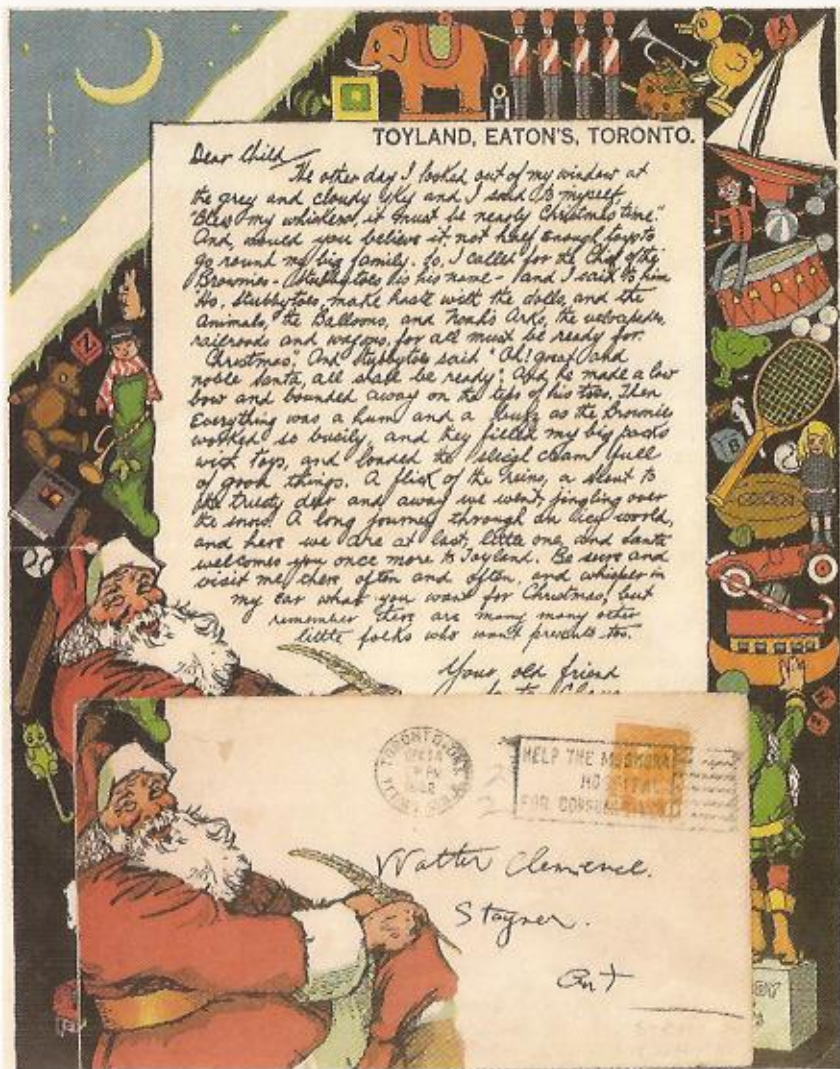 TOYLAND, EATON'S, TORONTO.
Dear Child
The other day I looked out of my window at
the grey and cloudy sky and I said to myself
"Bless my whiskers, it must be nearly Christmas time."
And, would you believe it, not half enough toys to
go round my big family. So, I called for the Chief of the
Brownies - Stubbytoes is his name - and I said to him
"Ho, Stubbytoes, make haste with the dolls, and the
Animals, the Balloons, and Noah's Arks, the velocipedes,
railroads and wagons, for all must be ready for
Christmas". And Stubbytoes said "Oh! great and
noble Santa, all shall be ready". And he made a low
bow and bounded away on the tips of his toes. Then
Everything was a hum and a buzz as the Brownies
worked so busily, and they filled my big packs
with toys, and loaded the sleigh cram full
of good things. A flick of the reins, a shout to
the trusty deer and away we went, jingling over
the snow. A long journey through an icy world,
and here we are at last, little one, and Santa
welcomes you once more to Toyland. Be sure and
visit me there often and often, and whisper in
my ear what you want for Christmas, but
remember there are many many other
little folks who want presents too.
Your old friend
Santa Claus
TORONTO, ONT.
HELP THE MUSKOKA
HOSPITAL
FOR CONSUMPTIVES
Walter
Stayner.
Ont
A
Z
B